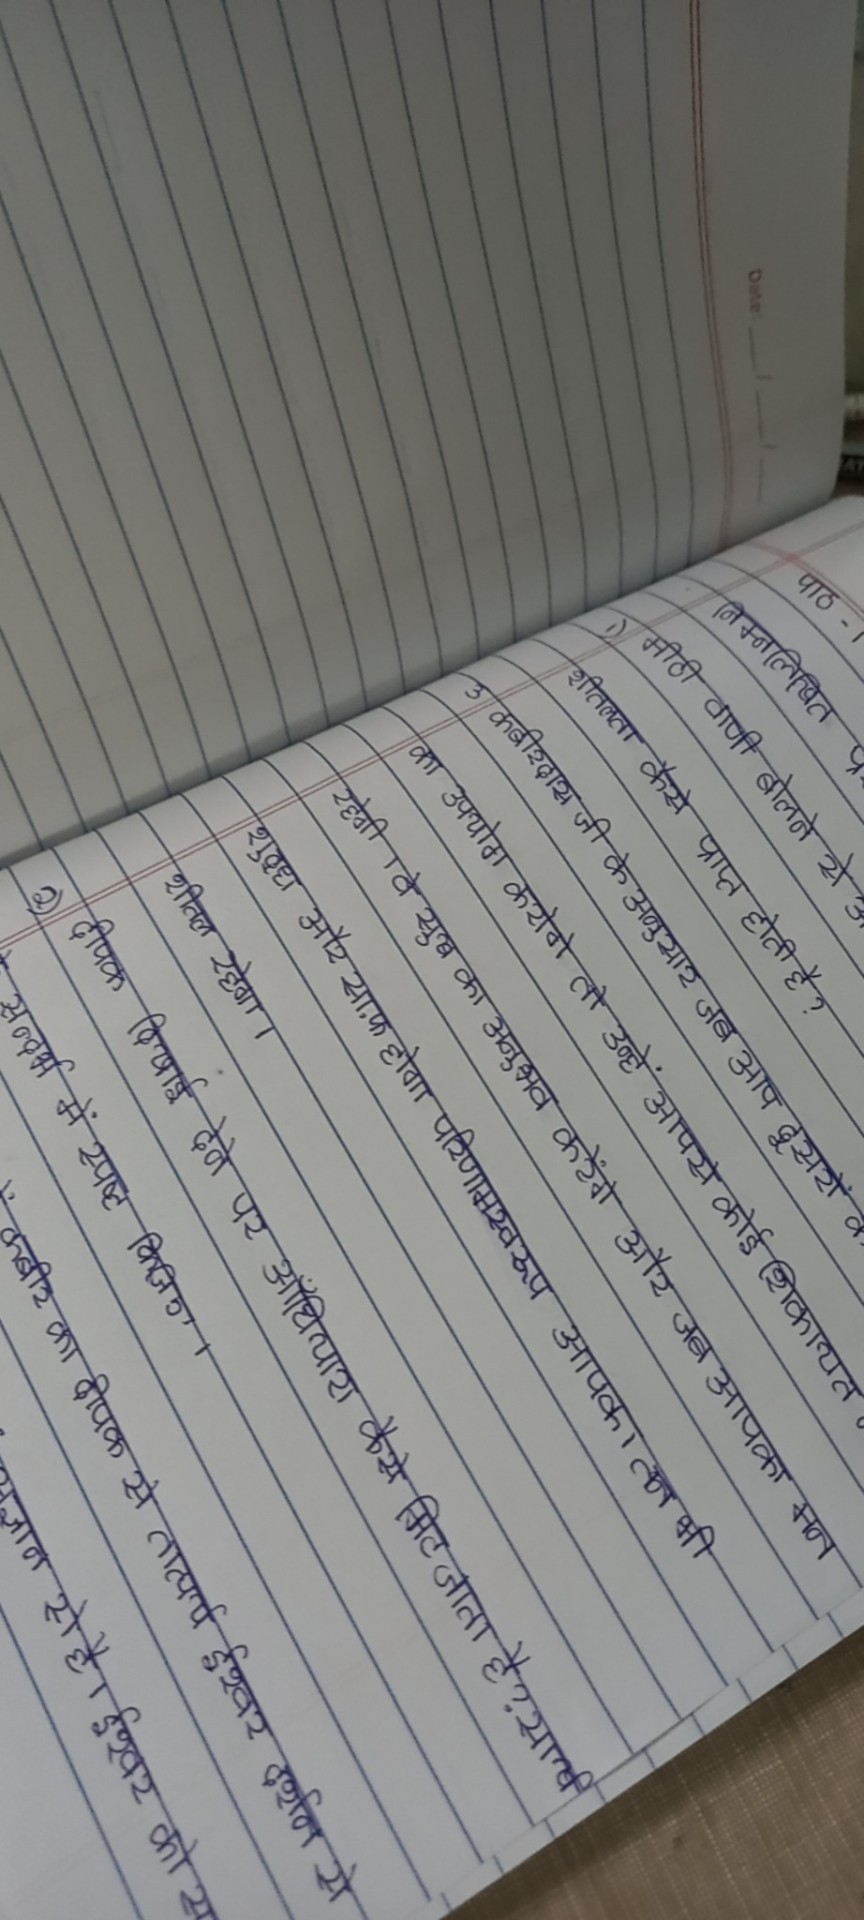 Date
पाठ - 1
निम्नलिखित
1) मीठी वाणी बोलने से
शीतलता कैसे प्राप्त होती है?
उ कबीरदास जी के अनुसार जब आप दूसरों
का उपयोग करोगे तो उन्हें आपसे कोई शिकायत
रहेगी । वे सुख का अनुभव करेंगे और जब आपका मन
शुद्ध और साफ़ होगा परिणामस्वरूप आपका तन भी
शीतल रहेगा।
2) दीपक दिखाई देने पर अँधियारा कैसे मिट जाता है? साखी
के सन्दर्भ में स्पष्ट किजिए।
कबीर का दीपक से तात्पर्य ईश्वर दर्शन से
है। ईश्वर को